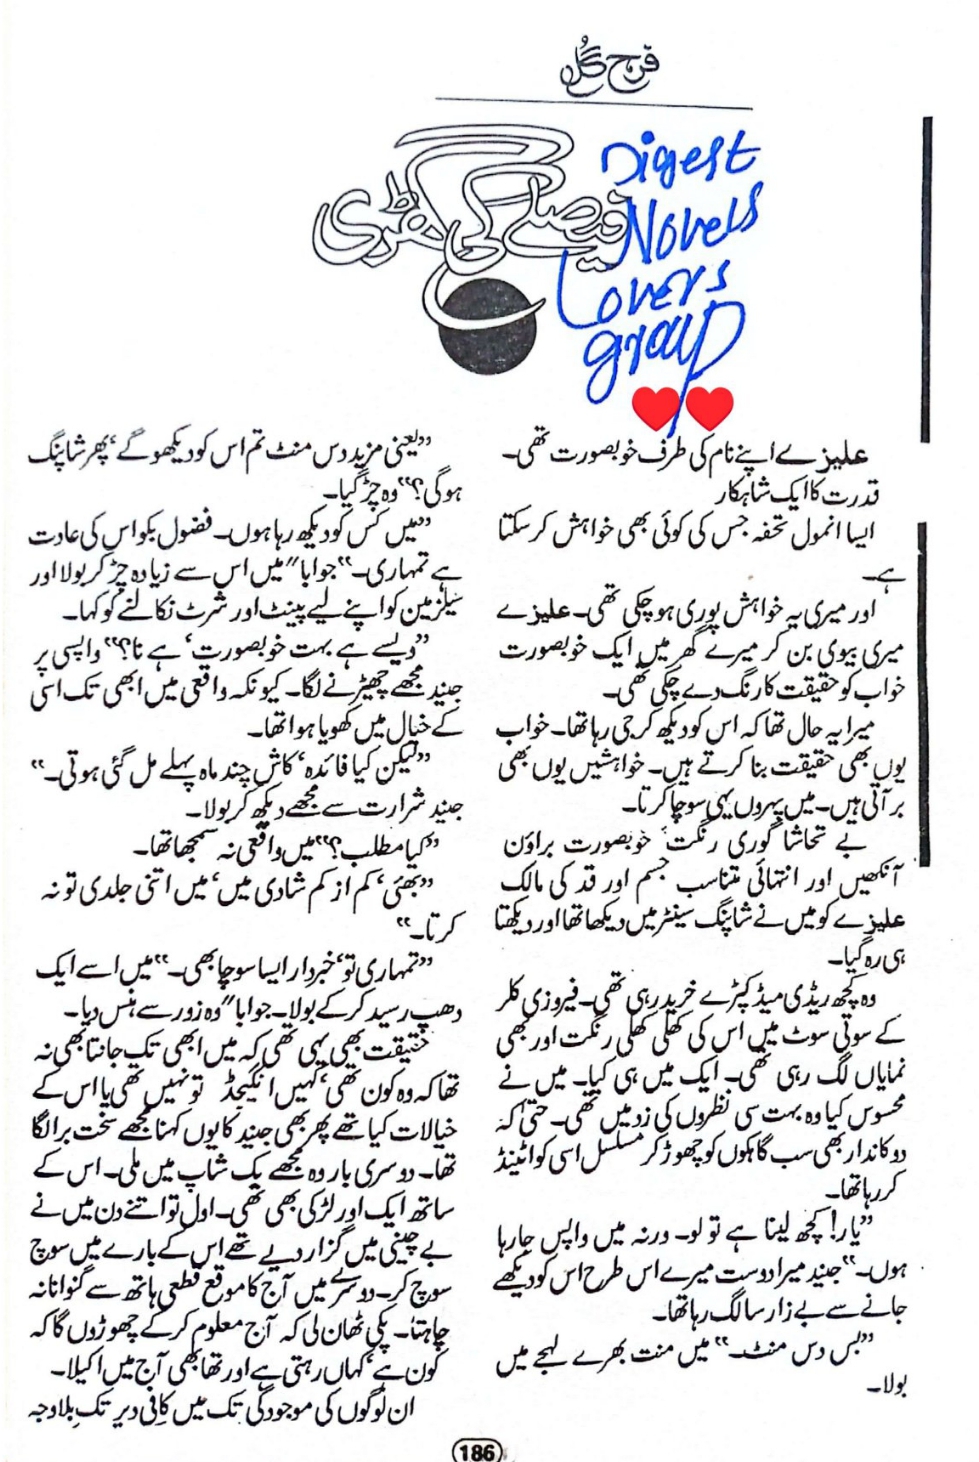 فرح گُل
فیصلے کی گھڑی
Digest
Novels
Lovers
group
علیزے اپنے نام کی طرف خوبصورت تھی۔
قدرت کا ایک شاہکار
ایسا انمول تحفہ جس کی کوئی بھی خواہش کر سکتا
ہے۔
اور میری یہ خواہش پوری ہو چکی تھی۔ علیزے
میری بیوی بن کر میرے گھر میں ایک خوبصورت
خواب کو حقیقت کا رنگ دے چکی تھی۔
میرا یہ حال تھا کہ اس کو دیکھ کر جی رہا تھا۔ خواب
یوں بھی حقیقت بنا کرتے ہیں۔ خواہشیں یوں بھی
بر آتی ہیں۔ میں پہروں یہی سوچا کرتا۔
بے تحاشا گوری رنگت، خوبصورت براؤن
آنکھیں اور انتہائی متناسب جسم اور قد کی مالک
علیزے کو میں نے شاپنگ سینٹر میں دیکھا تھا اور دیکھتا
ہی رہ گیا۔
وہ کچھ ریڈی میڈ کپڑے خرید رہی تھی۔ فیروزی کلر
کے سوتی سوٹ میں اس کی کھلی کھلی رنگت اور بھی
نمایاں لگ رہی تھی۔ ایک میں ہی کیا۔ میں نے
محسوس کیا وہ بہت سی نظروں کی زد میں تھی۔ حتیٰ کہ
دوکاندار بھی سب گاہکوں کو چھوڑ کر مسلسل اسی کو اٹینڈ
کر رہا تھا۔
”یار! کچھ لینا ہے تو لو۔ ورنہ میں واپس جا رہا
ہوں۔“ جنید میرا دوست میرے اس طرح اس کو دیکھے
جانے سے بے زار سا لگ رہا تھا۔
”بس دس منٹ۔“ میں منت بھرے لہجے میں
بولا۔
”یعنی مزید دس منٹ تم اس کو دیکھو گے، پھر شاپنگ
ہوگی؟“ وہ چڑ گیا۔
”میں کس کو دیکھ رہا ہوں۔ فضول بکواس کی عادت
ہے تمہاری۔“ جواباً میں اس سے زیادہ چڑ کر بولا اور
سیلزمین کو اپنے لیے پینٹ اور شرٹ نکالنے کو کہا۔
”ویسے ہے بہت خوبصورت، ہے نا؟“ واپسی پر
جنید مجھے چھیڑنے لگا۔ کیونکہ واقعی میں ابھی تک اسی
کے خیال میں کھویا ہوا تھا۔
”لیکن کیا فائدہ، کاش چند ماہ پہلے مل گئی ہوتی۔“
جنید شرارت سے مجھے دیکھ کر بولا۔
”کیا مطلب؟“ میں واقعی نہ سمجھا تھا۔
”بھئی، کم از کم شادی میں، میں اتنی جلدی تو نہ
کرتا۔“
”تمہاری تو، خبردار ایسا سوچا بھی۔“ میں اسے ایک
دھپ رسید کر کے بولا۔ جواباً وہ زور سے ہنس دیا۔
حقیقت بھی یہی تھی کہ میں ابھی تک جانتا بھی نہ
تھا کہ وہ کون تھی، کہیں انگیجڈ تو نہیں تھی یا اس کے
خیالات کیا تھے پھر بھی جنید کا یوں کہنا مجھے سخت برا لگا
تھا۔ دوسری بار وہ مجھے بک شاپ میں ملی۔ اس کے
ساتھ ایک اور لڑکی بھی تھی۔ اول تو اتنے دن میں نے
بے چینی میں گزار دیے تھے اس کے بارے میں سوچ
سوچ کر۔ دوسرے میں آج کا موقع قطعی ہاتھ سے گنوانا نہ
چاہتا۔ پکی ٹھان لی کہ آج معلوم کر کے چھوڑوں گا کہ
کون ہے، کہاں رہتی ہے اور تھا بھی آج میں اکیلا۔
ان لوگوں کی موجودگی تک میں کافی دیر تک بلاوجہ
186